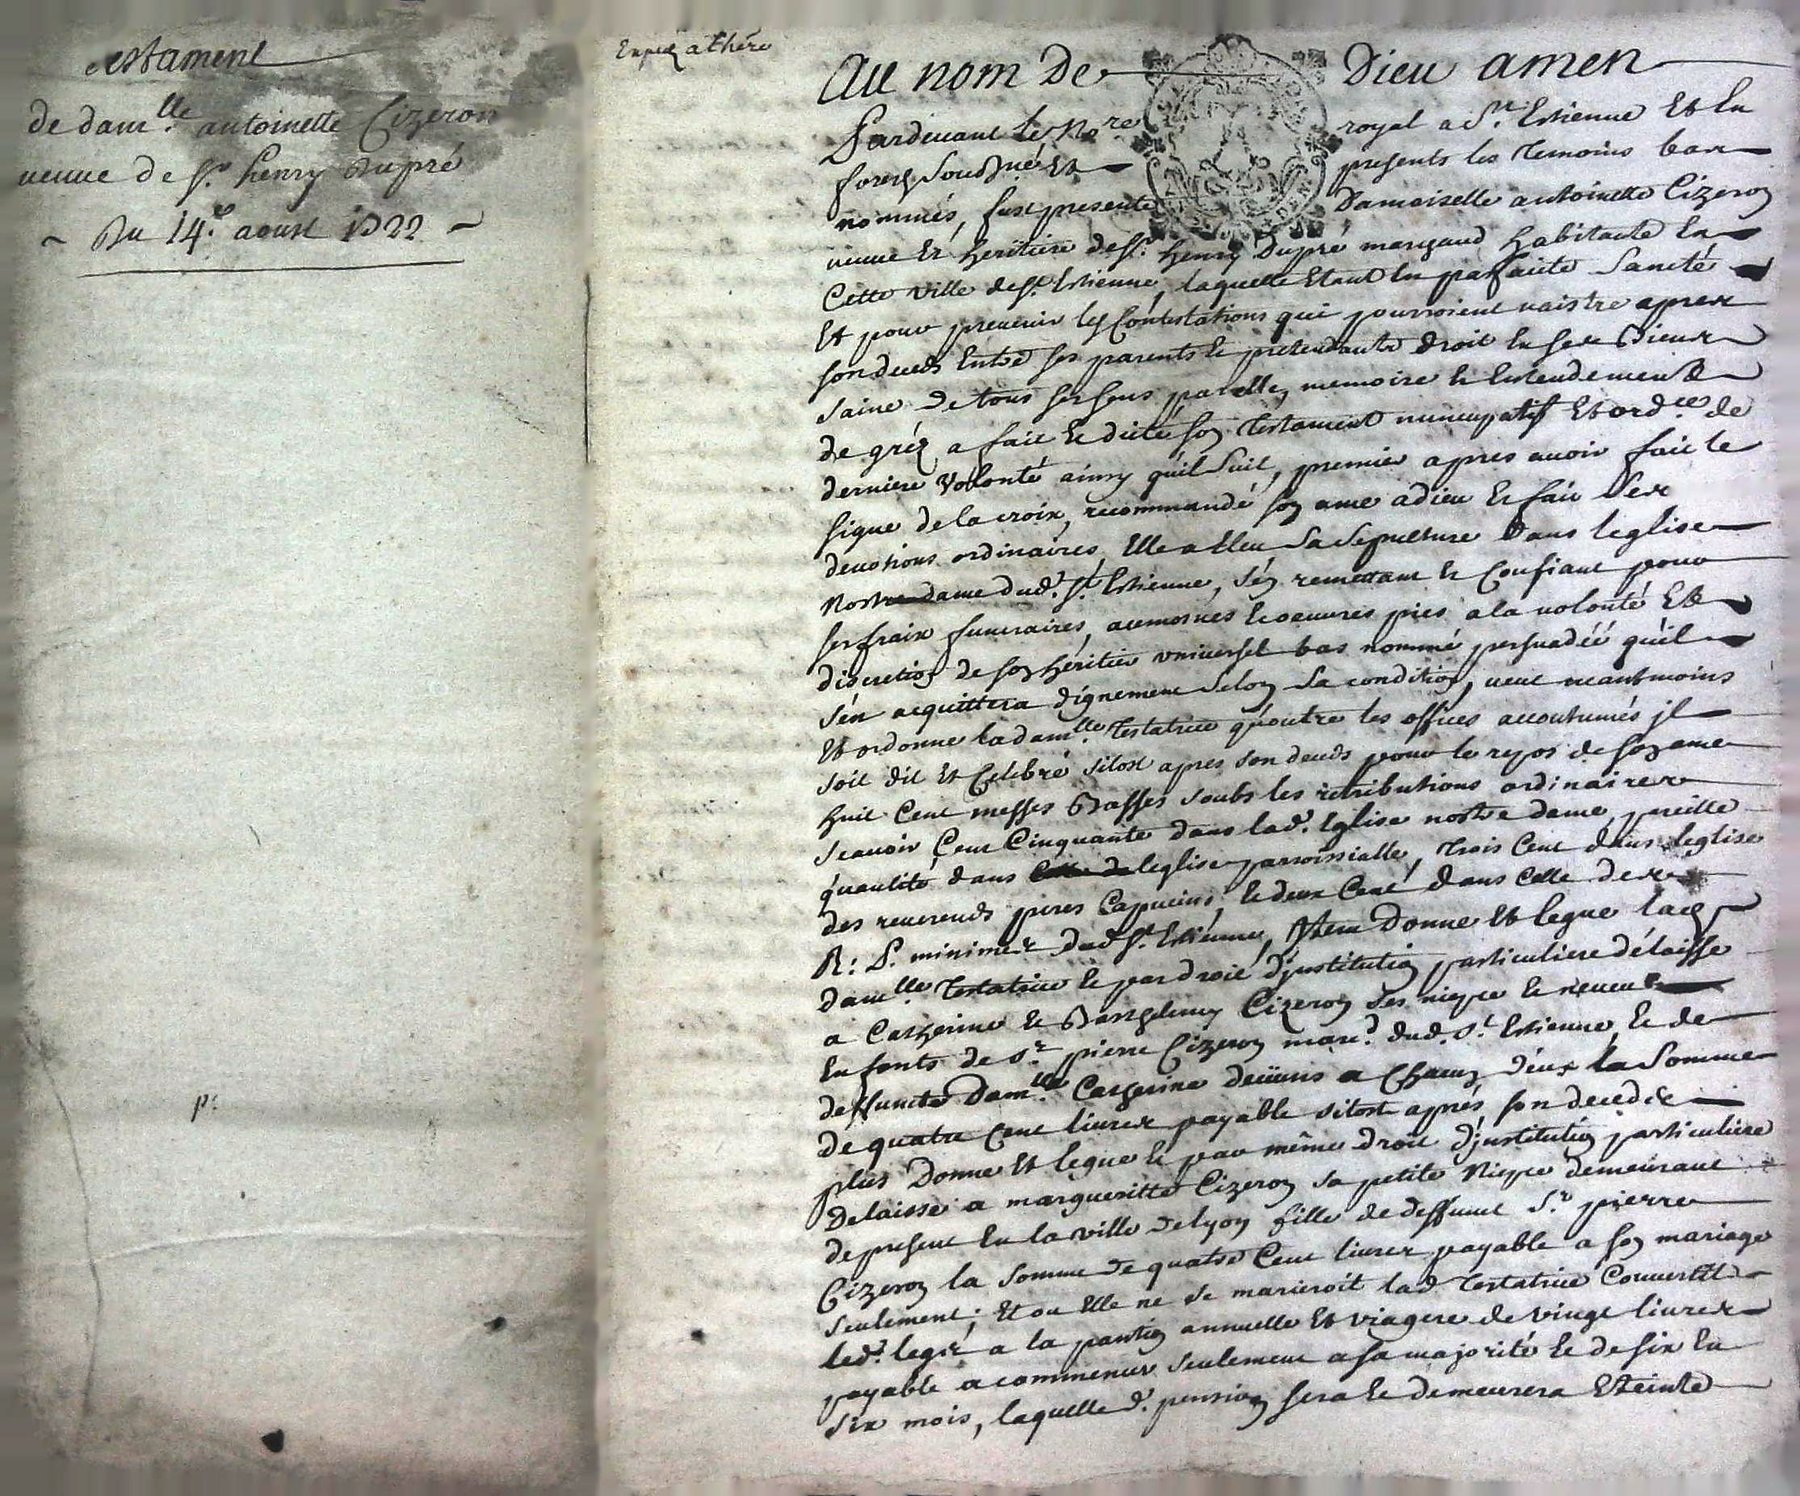 testament
de dam.lle antoinette Cizeron
veuve de Sr. henry Dupré
~ Du 14.e aoust 1722 ~
p.
Exped a lhére
Au nom De Dieu amen
Pardevant le No.re royal a St. Estienne Et En
forest Soubné Et presents les temoins bas
nommés, fust presente Damoiselle antoinette Cizeron
veuve Et heritiere de Sr. henry Dupré marchand habitante En
Cette ville de St. Estienne, laquelle Etant En parfaite Santé
Et pour prevenir les Contestations qui pourroient naistre apres
son deceds Entre ses parents Et pretendants droit En ses Biens
saine de tous ses sens parolle, memoire Et Entendement
de gréz a fait Et dicté son Testament nuncupatif Et ord.ce de
derniere Volonté ainsy qu'il Suit, premier apres avoir fait le
signe de la croix, recommandé son ame a dieu Et fait Ses
devotions ordinaires, Elle a Eleu Sa Sepulture Dans leglise
Nostre dame dud. St. Estienne, s'en remettant Et Confiant pour
ses fraix funeraires, aumosnes Et oeuvres pies a la volonté Et
discretion de son héritier universel bas nommé persuadéé qu'il
s'en acquittera dignement Selon Sa condition, veut neantmoins
Et ordonne lad dam.lle Testatrice qu'outre les offices accoutumés jl
soit dit Et Celebré sitost apres son deceds pour le repos de son ame
huit Cent messes Basses soubs les retributions ordinaires
scavoir Cent Cinquante dans lad. Eglise nostre dame, pareille
quantité dans leglise parroissialle, Trois Cent dans leglise
des reverends peres Capucins, Et deux Cent dans Celle des
R: P. minimes dud St. Estienne, Item Donne Et legue lad
dam.lle Testatrice Et par droit d'jnstitution particuliere délaisse
a Catherine Et Barthelemy Cizeron Ses niepce Et neveu
Enfants de Sr. pierre Cizeron marc.d dud. St. Estienne, Et de
deffuncte Dam.lle Catherine a Chacun d'eux la Somme
de quatre Cent livres payable sitost aprés son deceds
plus Donne Et legue Et par même droit d'jnstitution particuliere
Delaisse a margueritte Cizeron sa petite Niepce demeurant
de present En la ville de lyon fille de deffunct Sr. pierre
Cizeron la Somme de quatre Cent livres payable a son mariage
seulement; Et ou Elle ne se marieroit lad Testatrice Convertit
led. legat a la pention annuelle Et viagere de vingt livres
payable a commencer seulement a sa majorité Et de six En
six mois, laquelle d. pension sera Et demeurera Eteinte